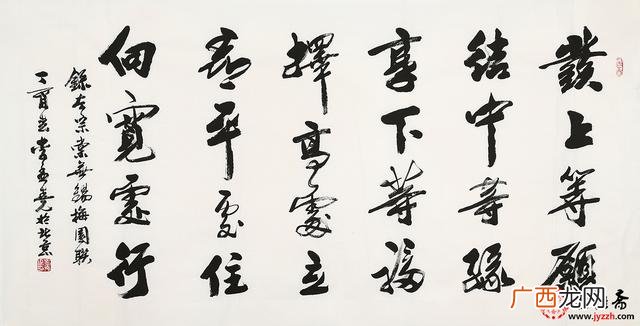 發上等願
結中等緣
享下等福
擇高處立
尋平处住
向寬處行
錄左宗棠無錫梅園聯
丁酉於北京
斋
广西龙网
www.jyzzh.com